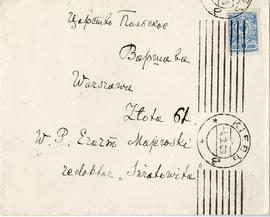 Царство Польское
Варшава
Warszawa
Złota 61
W. P. Erazm Majewski
redaktor "Światowita"
КІЕВЪ